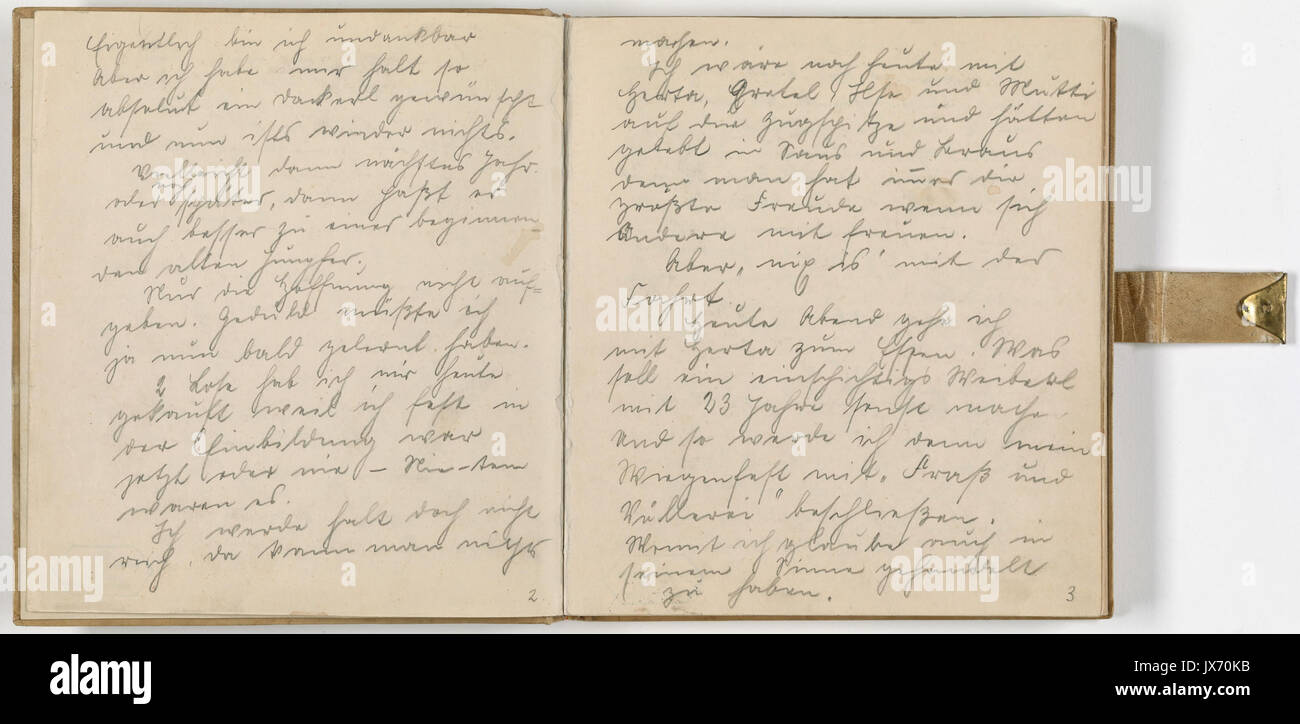 Eigentlich bin ich undankbar
Aber ich habe mir halt so
absolut ein Dackerl gewünscht
und nun ists wieder nichts.
Vielleicht dann nächstes Jahr.
oder später, dann paßt er
auch besser zu einer beginnen
den alten Jungfer.
Nur die Hoffnung nicht auf=
geben. Geduld müßte ich
ja nun bald gelernt haben.
2 Lose hab ich mir heute
gekauft weil ich fest in
der Einbildung war
jetzt oder nie – Nie-ten
waren es.
Ich werde halt doch nicht
reich, da kann man nichts
2
machen.
Ich wäre noch heute mit
Herta, Gretel, Ilse und Mutti
auf die Zugspitze und hätten
gelebt in Saus und Braus
denn man hat immer die
größte Freude wenn sich
Andere mit freuen.
Aber, nix is' mit der
Fahrt.
Heute Abend gehe ich
mit Herta zum Essen. Was
soll ein einschichtigs Weiberl
mit 23 Jahre sonst mache.
Und so werde ich denn mein
Wiegenfest mit „Fraß und
Völlerei" beschließen.
Womit ich glaube auch in
seinem Sinne gehandelt
zu haben.
3
alamy stock photo
JX70KB
www.alamy.com